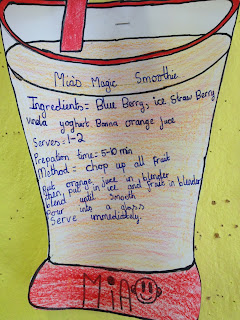 Mia's Magic Smoothie
Ingredients = Blue Berry, ice Straw Berry
yoghurt Banna orange juce
Serves = 1-2
Prepation time = 5-10 min
Method = chop up all fruit
Put orange juice in blender
then put y in ice and fruit in blender
blend until smooth
Pour into a glass
Serve immediately.
MiA